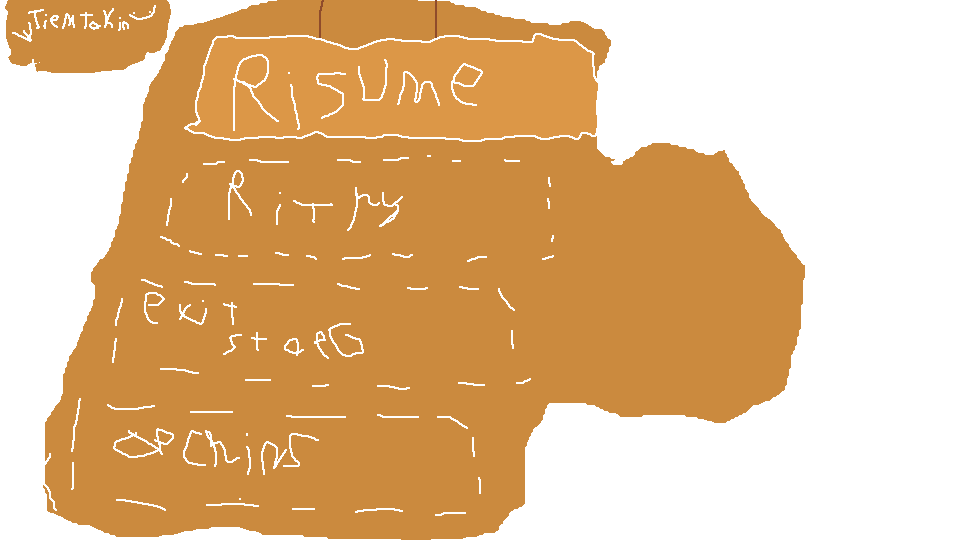 TiemTakin
Risume
Ritry
exit
staeG
opchins